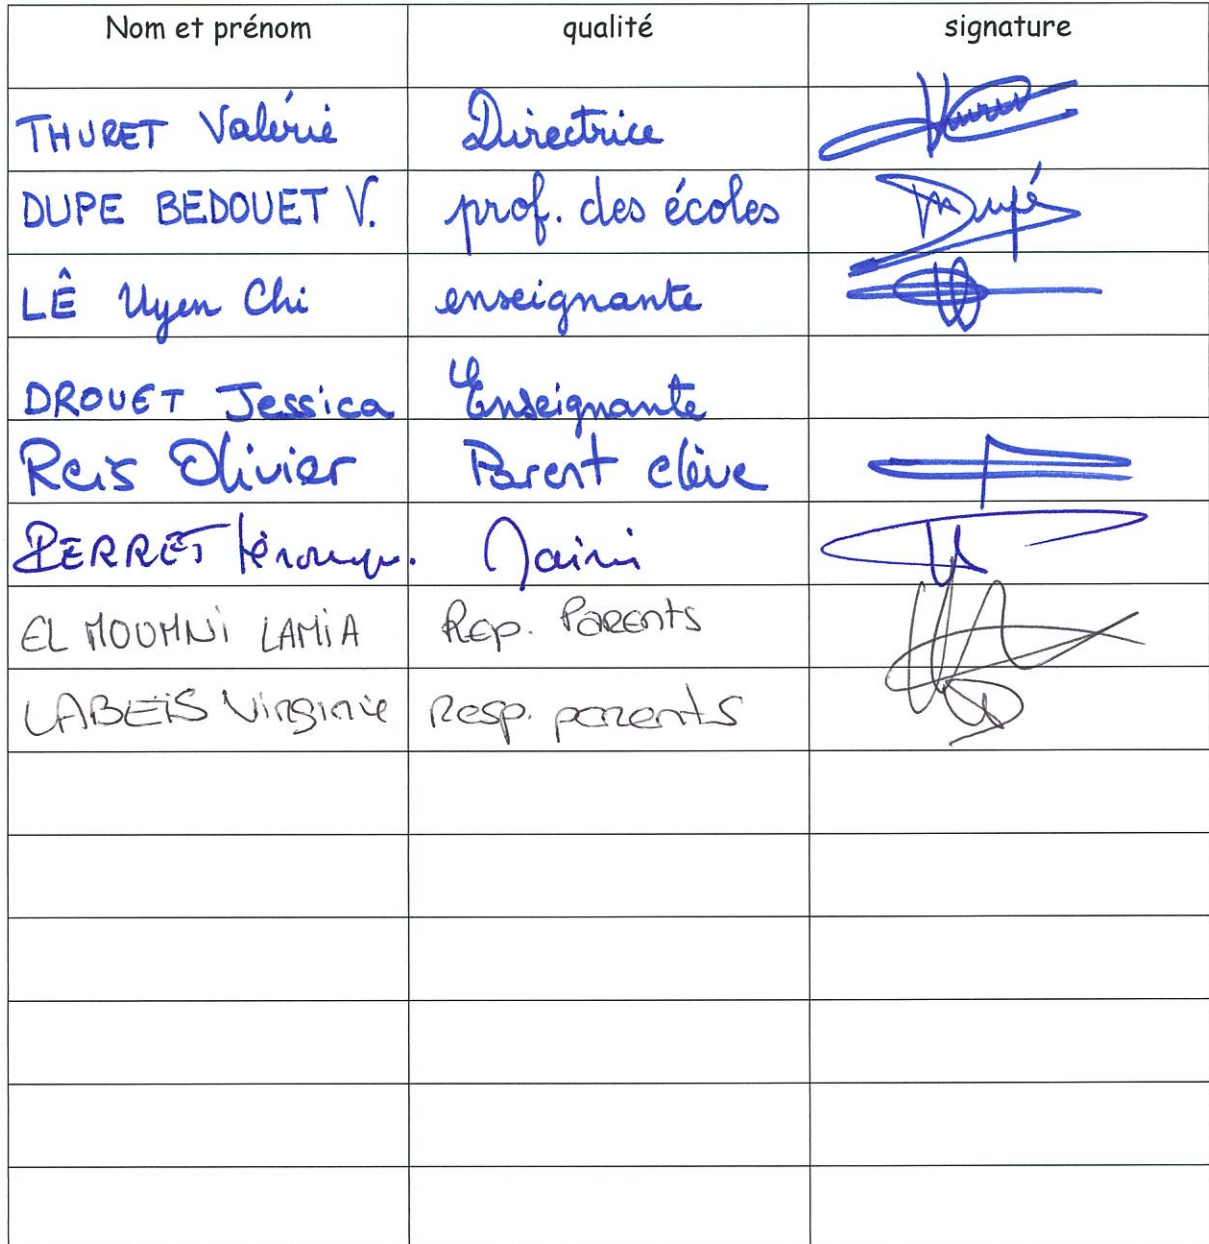 Nom et prénom qualité signature
THURET Valérie Directrice
DUPE BEDOUET V. prof. des écoles Dupé
LÊ Uyen Chi enseignante
DROUET Jessica Enseignante
Reis Olivier Parent elève
PERRET
EL MOUMNi LAMiA Rep. Parents
LABEiS Virginie Resp. parents